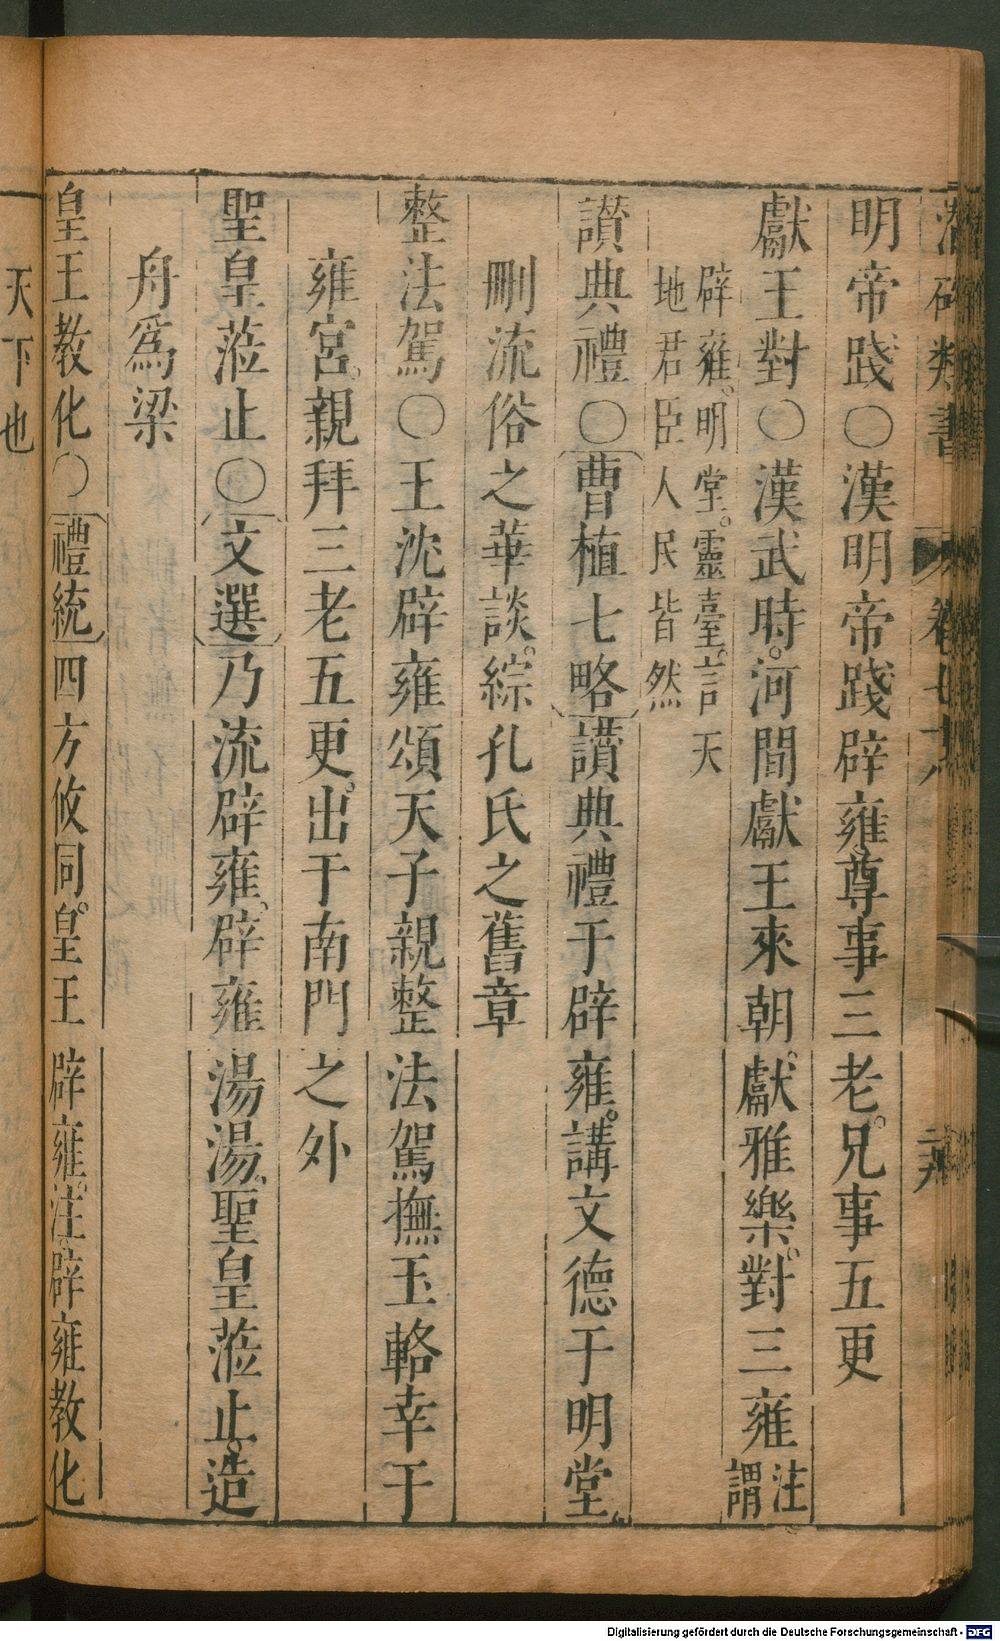 潛確類書 卷七十八
明帝踐〇漢明帝踐辟雍尊事三老兄事五更
獻王對〇漢武時河間獻王來朝獻雅樂對三雍注謂
辟雍明堂靈臺言天
地君臣人民皆然
讃典禮〇曹植七略讃典禮于辟雍講文德于明堂
刪流俗之華談綜孔氏之舊章
整法駕〇王沈辟雍頌天子親整法駕撫玉輅幸于
雍宮親拜三老五更出于南門之外
聖皇蒞止〇文選乃流辟雍辟雍湯湯聖皇蒞止造
舟爲梁
皇王教化〇禮統四方攸同皇王辟雍注辟雍教化
天下也
Digitalisierung gefördert durch die Deutsche Forschungsgemeinschaft - DFG